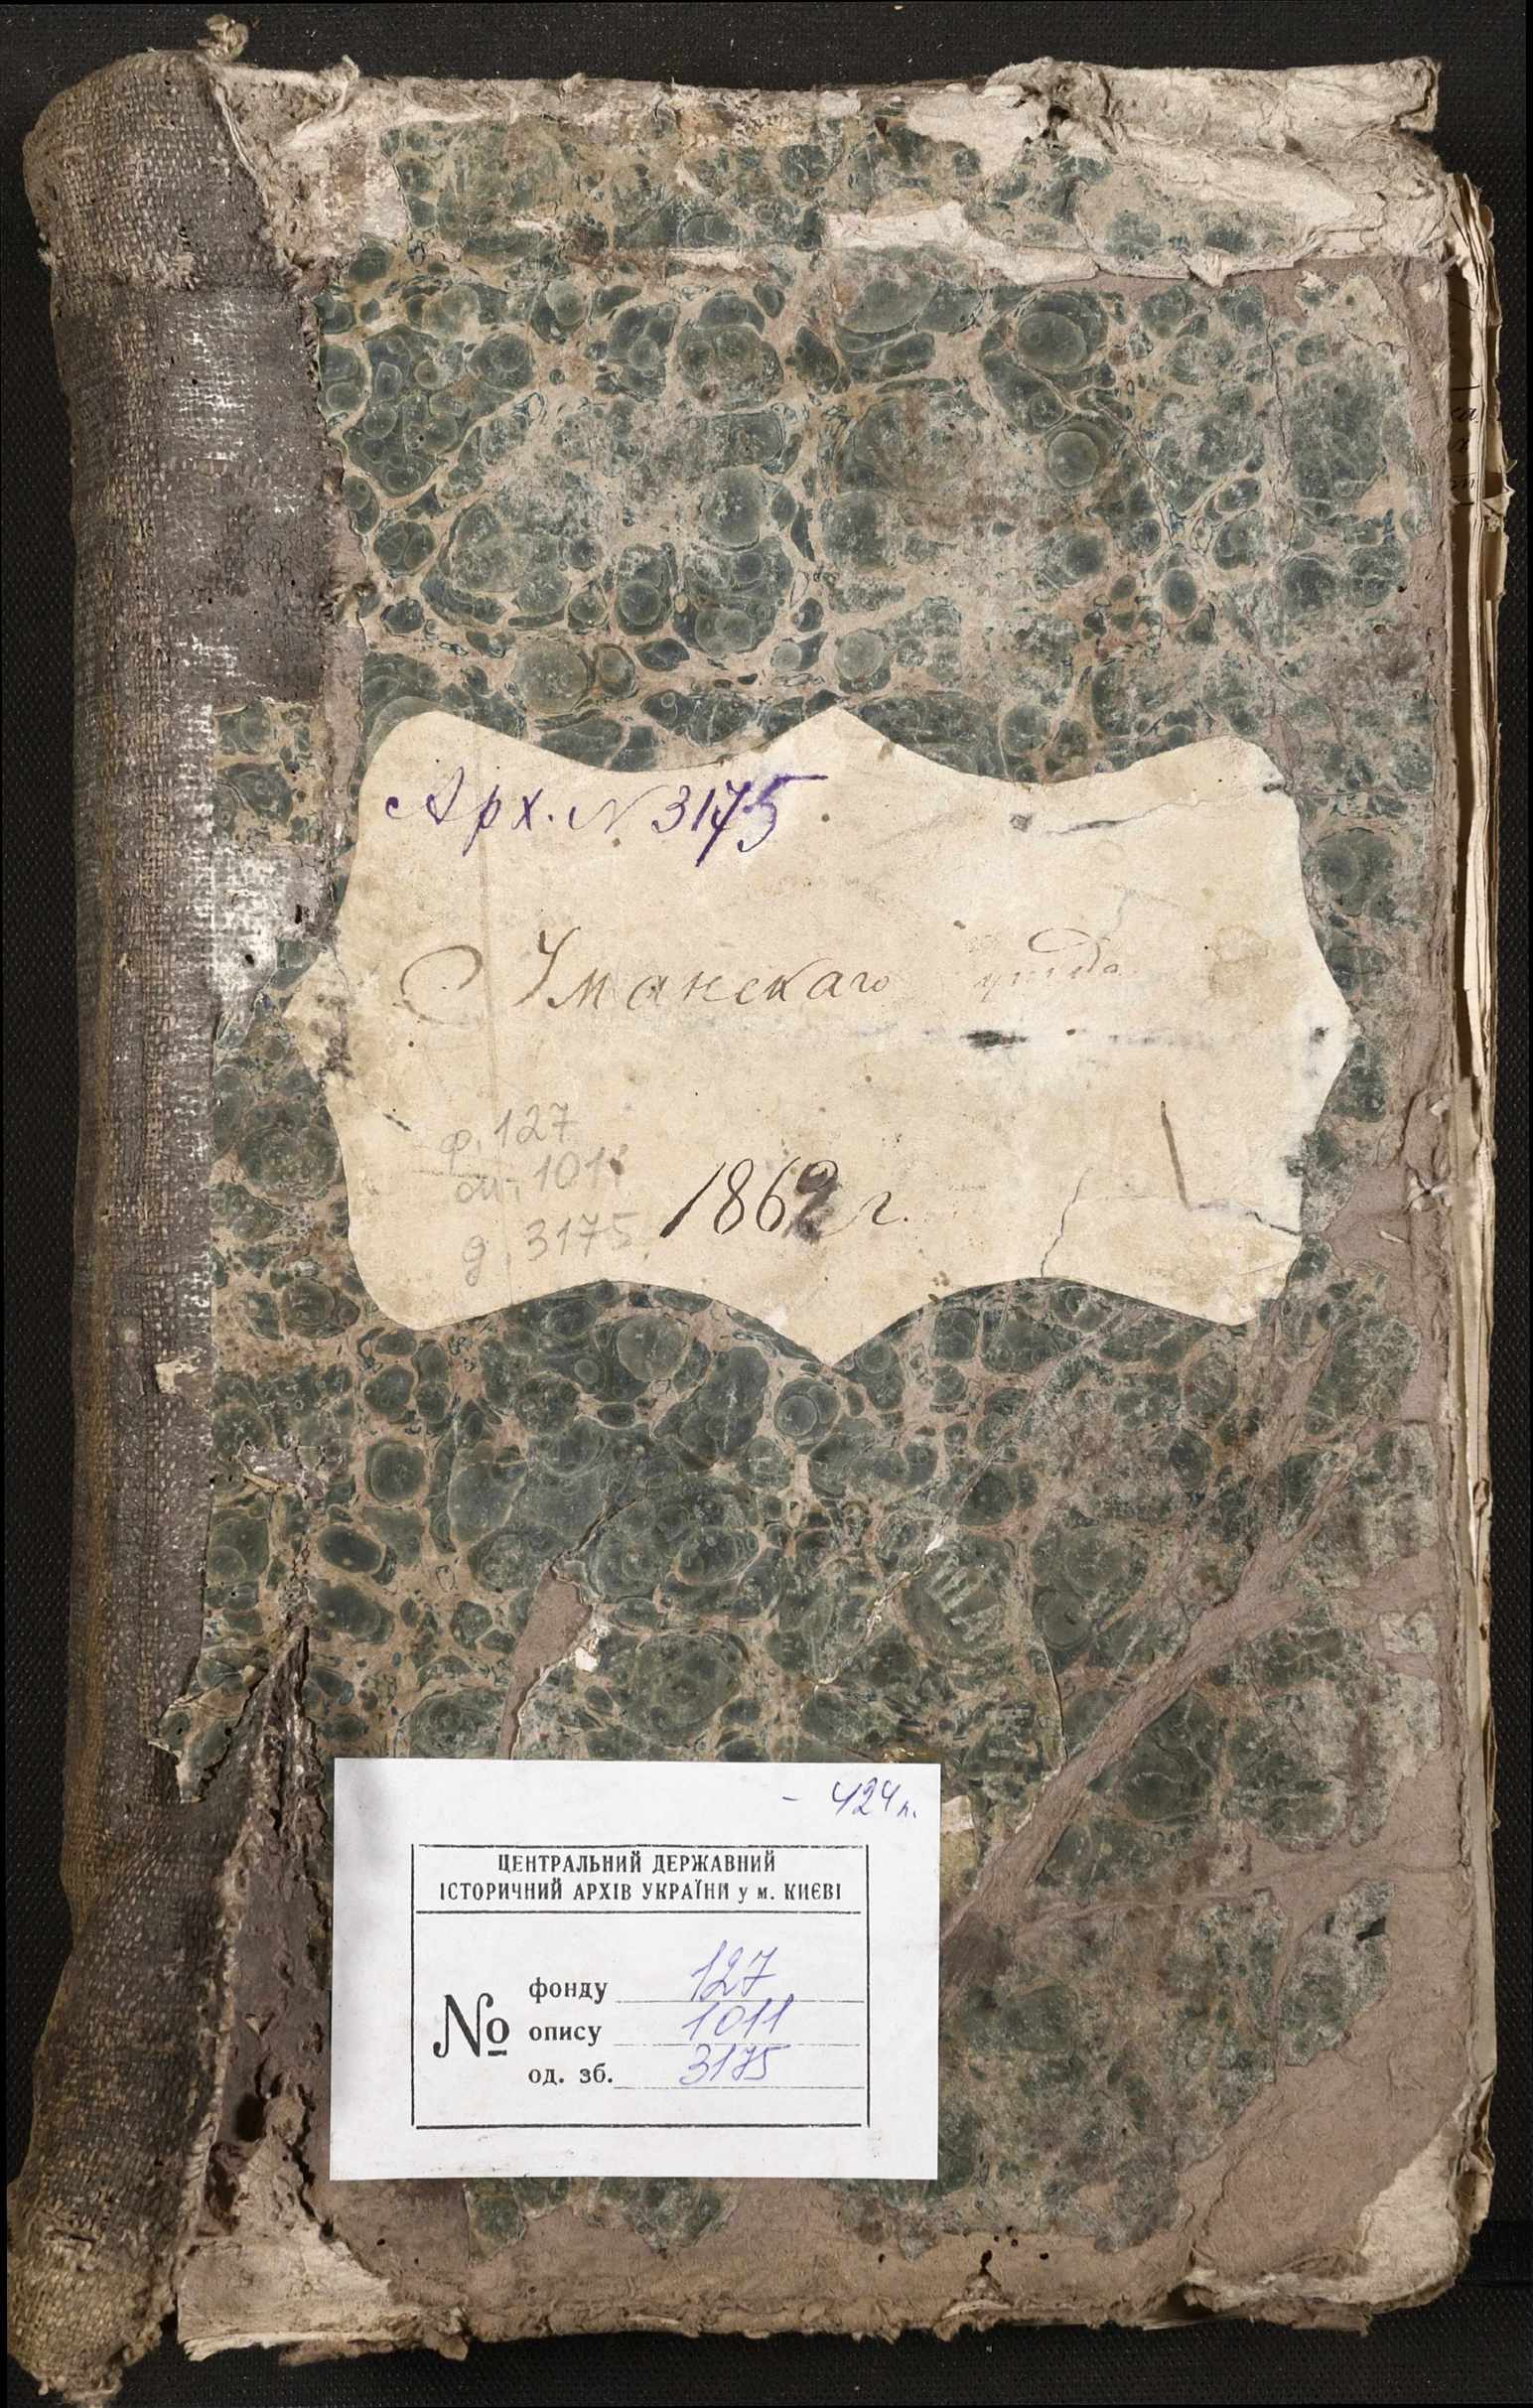 Арх. № 3175
Уманскаго уезда
ф. 127
оп. 1011
д. 3175
1862 г.
- 424 л.
ЦЕНТРАЛЬНИЙ ДЕРЖАВНИЙ
ІСТОРИЧНИЙ АРХІВ УКРАЇНИ у м. КИЄВІ
№
фонду 127
опису 1011
од. зб. 3175